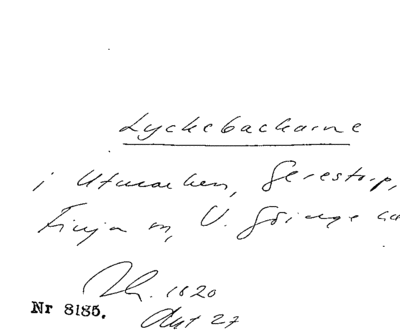 Lyckebackarne
i Utmarken, Gerestorp,
Finja sn, V. Göinge hd
Nr 8185.
1820
Akt 27